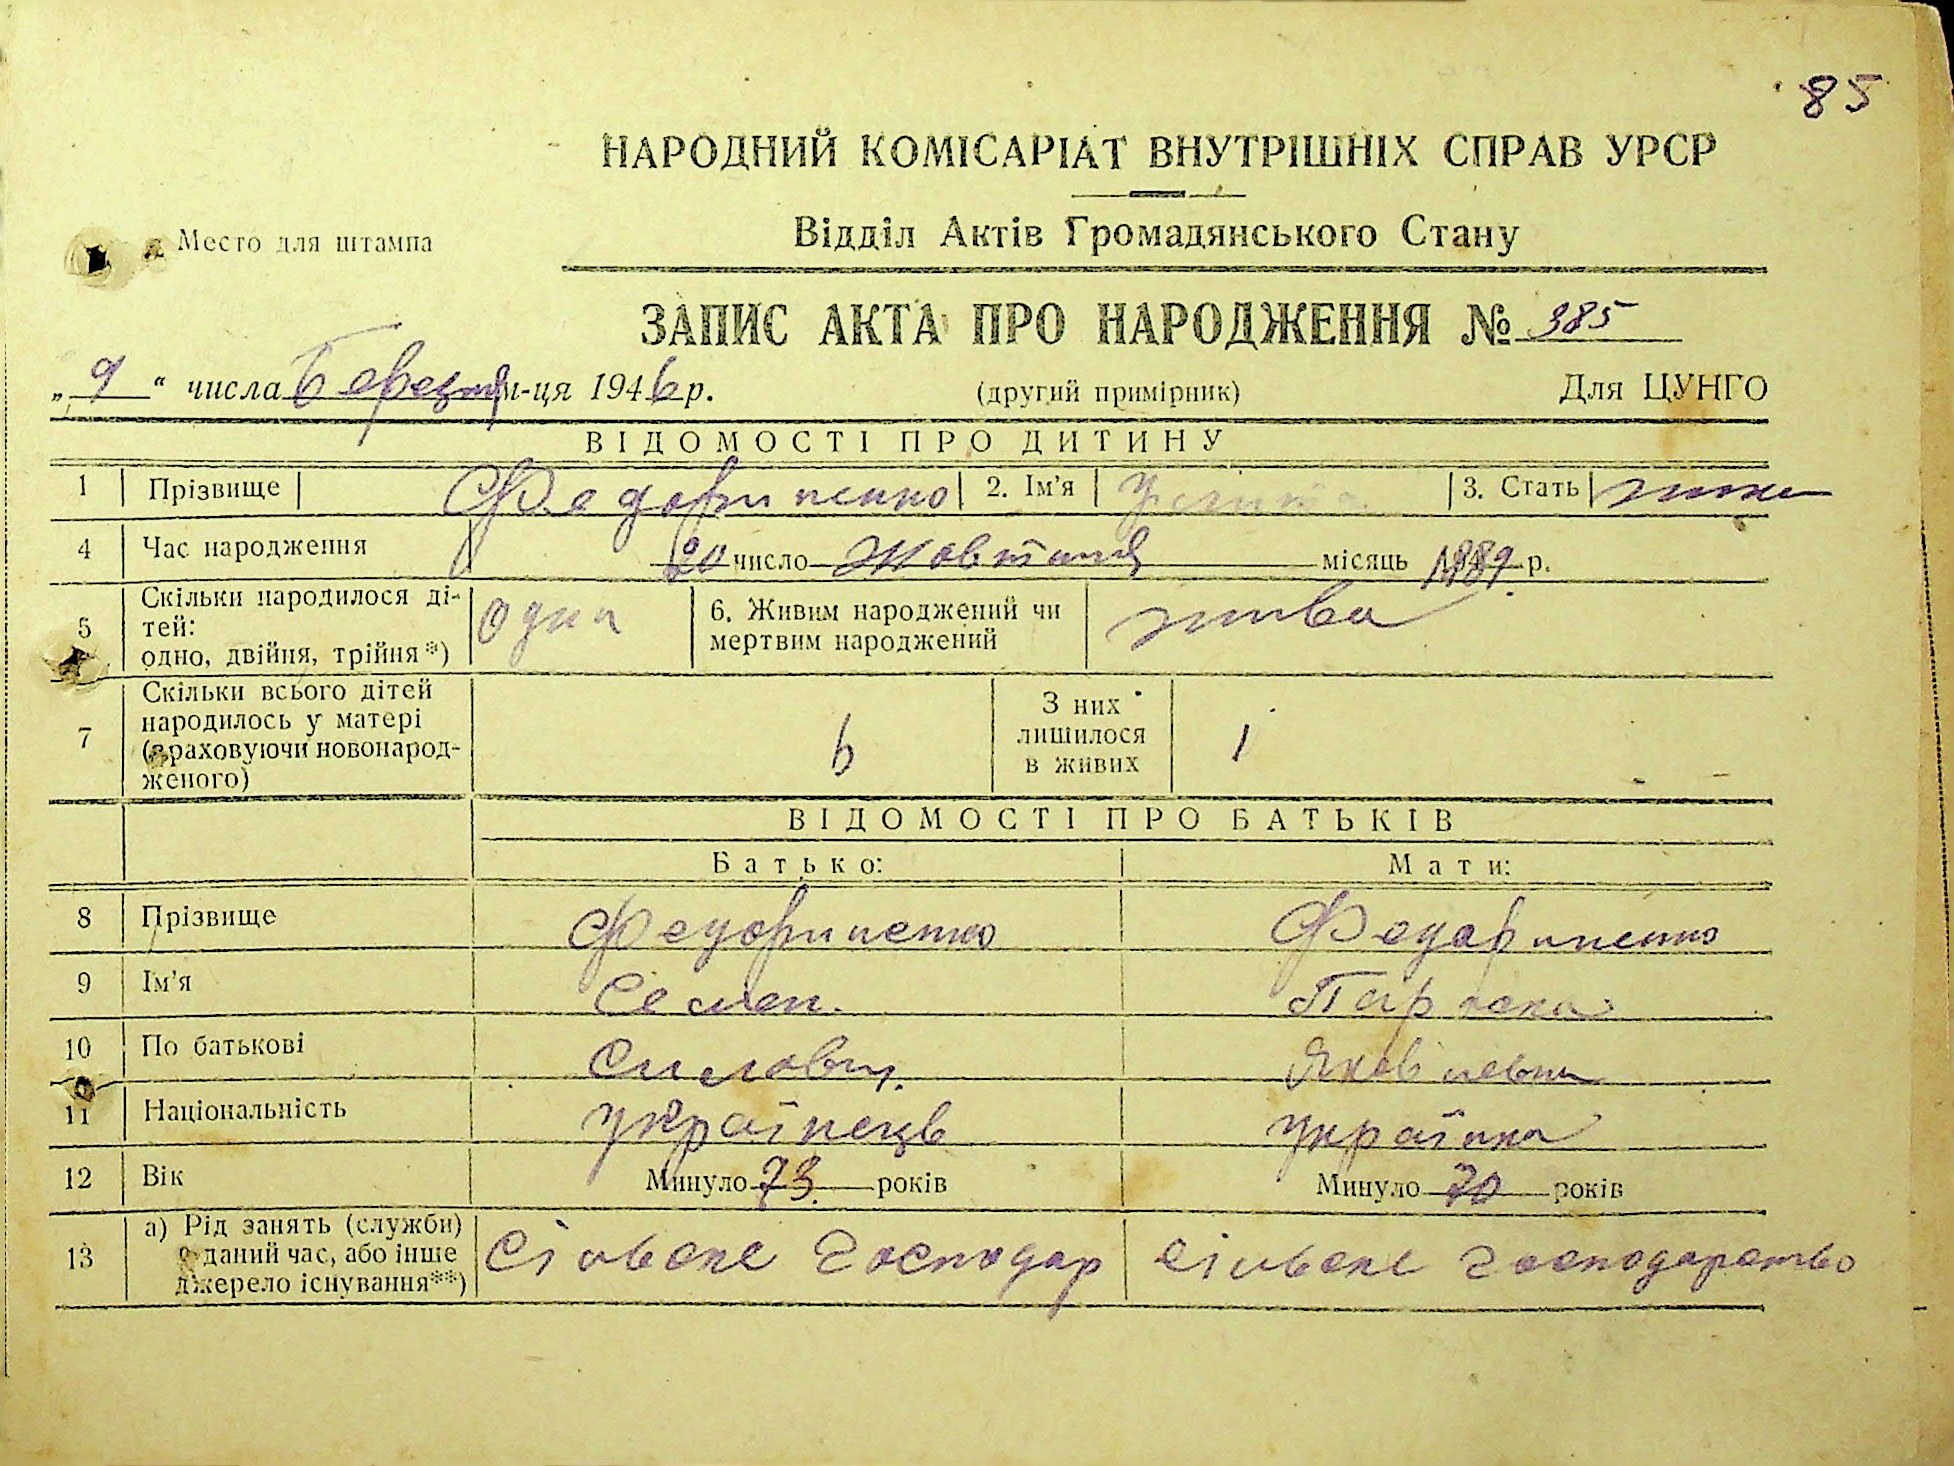 85
НАРОДНИЙ КОМІСАРІАТ ВНУТРІШНІХ СПРАВ УРСР
Место для штампа
Відділ Актів Громадянського Стану
ЗАПИС АКТА ПРО НАРОДЖЕННЯ № 385
„9“ числа Березня м-ця 1946 р. (другий примірник) Для ЦУНГО
ВІДОМОСТІ ПРО ДИТИНУ
1 Прізвище Федорипенко 2. Ім'я 3. Стать жоне
4 Час народження 20 число Жовтня місяць 1889 р.
5 Скільки народилося ді-
тей:
одно, двійня, трійня*) Одна 6. Живим народжений чи
мертвим народжений жива
7 Скільки всього дітей
народилось у матері
(враховуючи новонарод-
женого) 6 З них
лишилося
в живих 1
ВІДОМОСТІ ПРО БАТЬКІВ
Батько: Мати:
8 Прізвище Федорипенко Федорипенко
9 Ім'я Семен. Параска
10 По батькові Силович. Яковлевна
11 Національність Українець Українка
12 Вік Минуло 73 років Минуло 70 років
13 а) Рід занять (служби)
в даний час, або інше
джерело існування**) Сільске господар сільске господарство